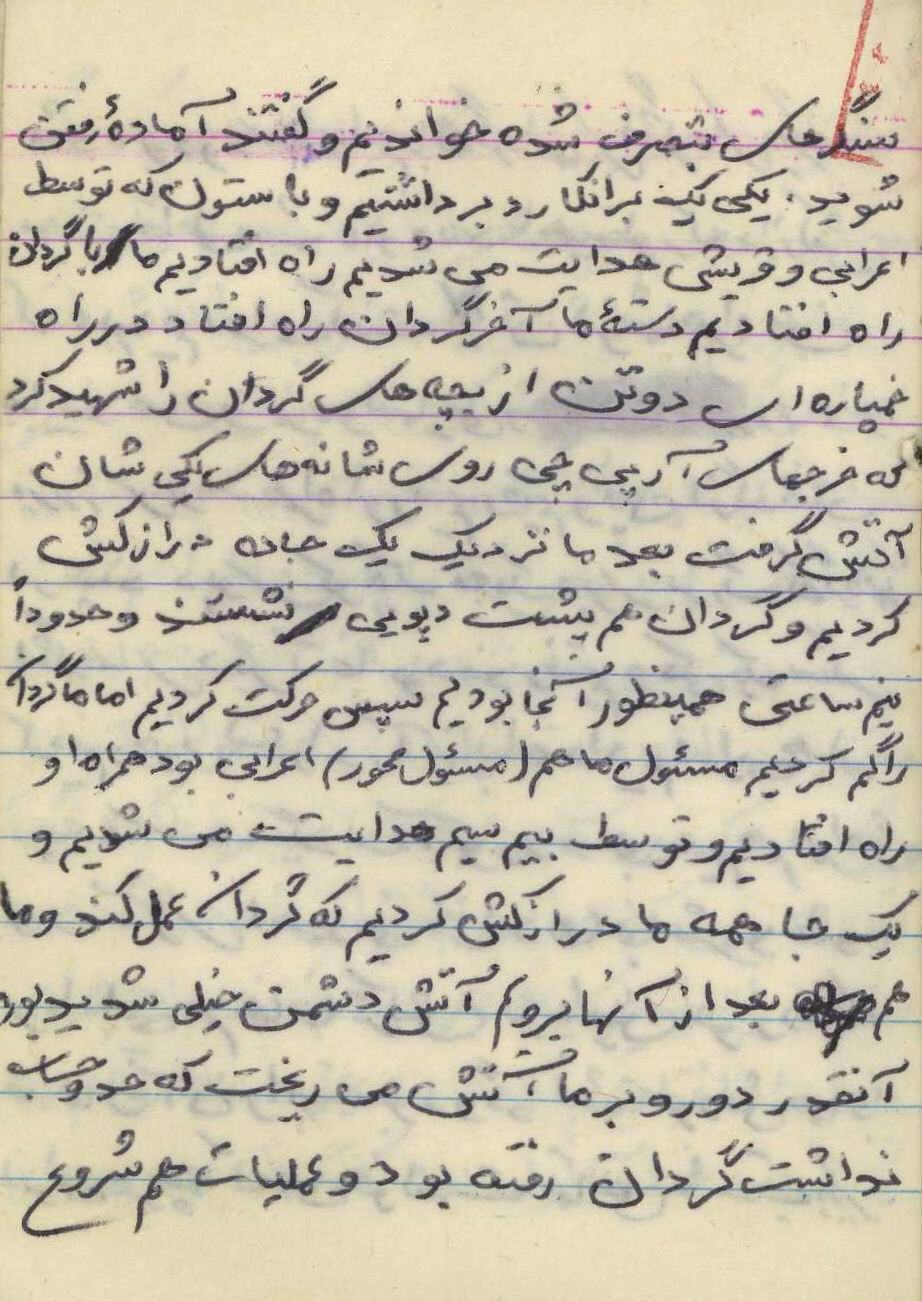 سنگرهای تصرف شده خواندیم و گفتند آمادهٔ رفتن
شوید. یکی یک برانکارد برداشتیم و با ستون که توسط
اعرابی و قریشی هدایت می شدیم راه افتادیم ما با گردان
راه افتادیم دستهٔ ما آخر گردان راه افتاد در راه
خمپاره ای دوتن از بچه های گردان را شهید کرد
که خرجهای آرپی جی روی شانه های یکی شان
آتش گرفت بعد ما نزدیک یک جاده درازکش
کردیم و گردان هم پشت دپویی نشستند و حدوداً
نیم ساعتی همینطور آنجا بودیم سپس حرکت کردیم اما ما گردان
را گم کردیم مسئول ما هم (مسئول محور) اعرابی بود همراه او
راه افتادیم و توسط بیم سیم هدایت می شدیم و
یک جا همه ما درازکش کردیم که گردان عمل کند و ما
هم بعد از آنها برویم آتش دشمن خیلی شدید بود
آنقدر دور و بر ما آتش می ریخت که حد و حساب
نداشت گردان رفته بود و عملیات هم شروع